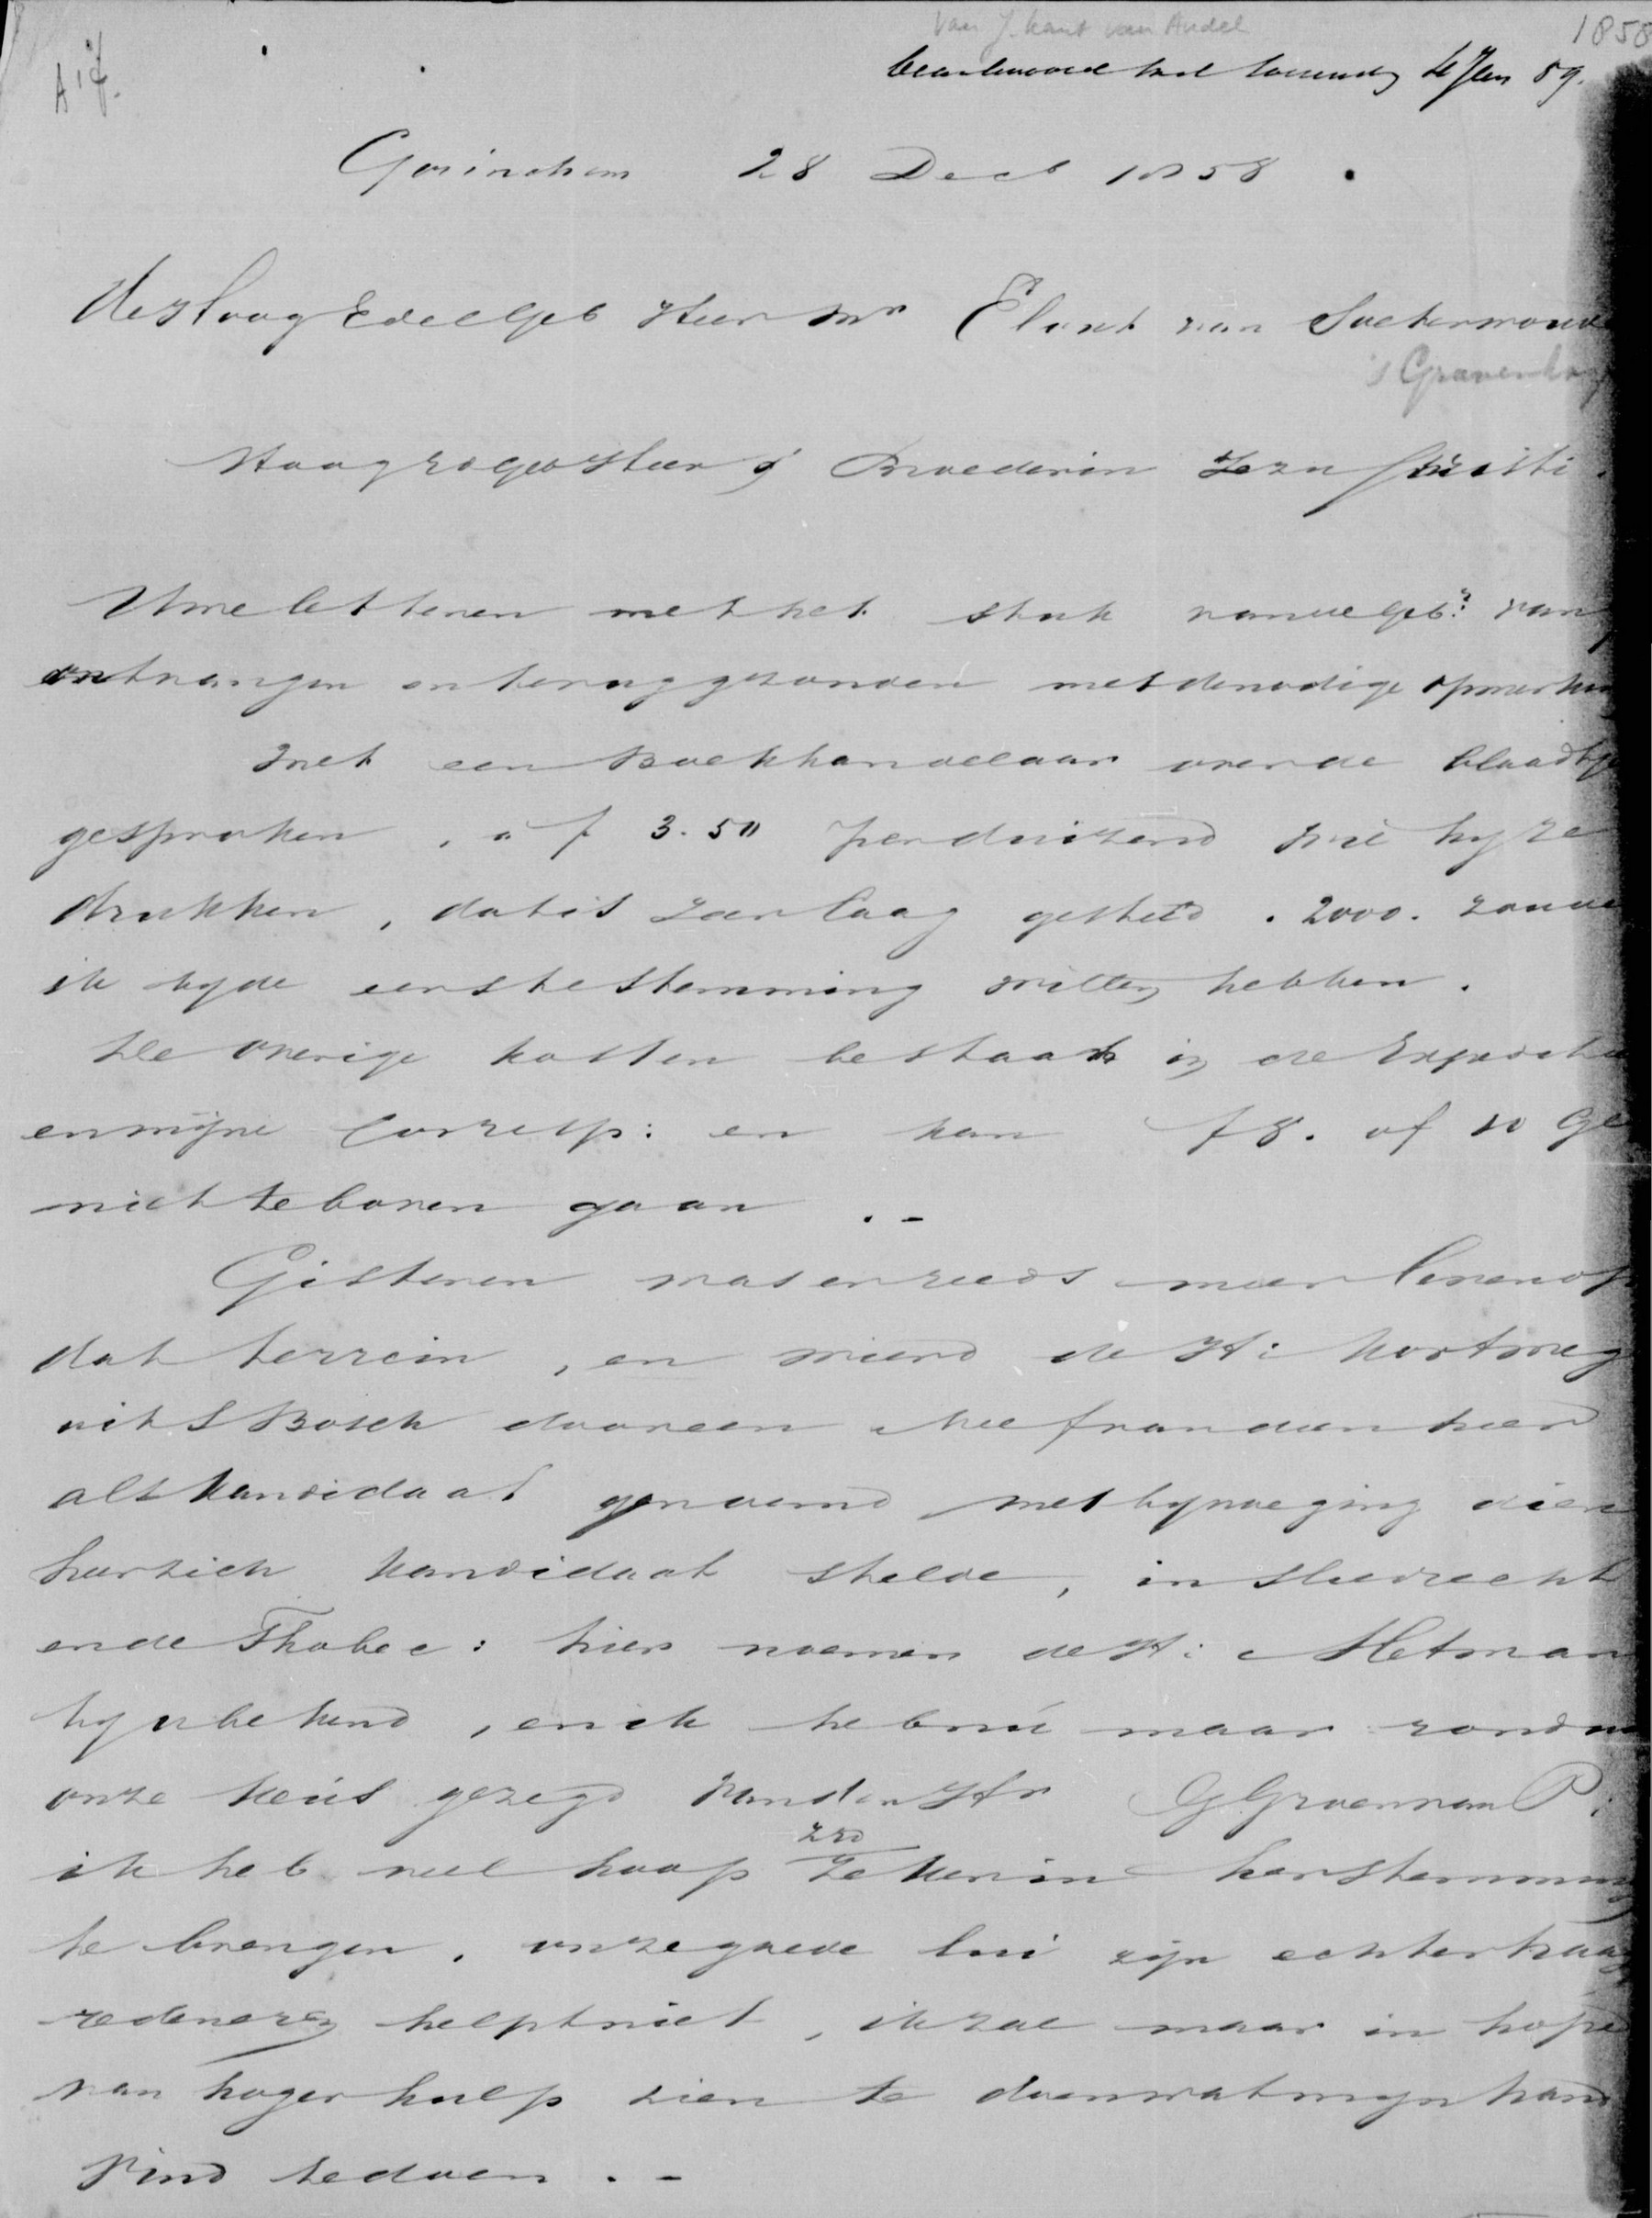 van J. Kant van Andel
1858
beantwoord 4 Jan 59.
A 17.
Gorinchem 28 Decb 1858.
Des HoogEdelGeb Heer Mr Elout van Soeterwoude
's Gravenhag
HoogEdGeb Heer & Broeder in Jezu Christi.
Uwe letteren met het stuk van UEGeb:
ontvangen en teruggezonden met de nodige opmerking
Met een Boekhandelaar over de blaadtje
gesproken, a f 3.50 per duizend wil hy ze
drukken, dat is zeer laag gesteld. 2000. zoude
ik by de eerste stemming willen hebben.
De overige kosten bestaat in de Expeditie
en mijne Corresp: en kan f 8. of 10 Gl
niet te boven gaan.-
Gisteren was er reeds meer leven op
dat terrein, en wierd de H: Kortweg
uit S Bosch door een
als Kandidaat genoemd met byvoeging die
heer zich Kandidaat stelde, in Sliedrecht
en de hier noemen de H: Metman
by u bekend, en ik heb nu maar rond
onze keus gezegd van den Hr G Groen van P:
ik heb veel hoop ZEd zeker in herstemming
te brengen. onze goede lui zijn echter traag
redeneren helpt niet, ik zal maar in hope
van hoger hulp zien te doen wat mijn hand
vind te doen.-